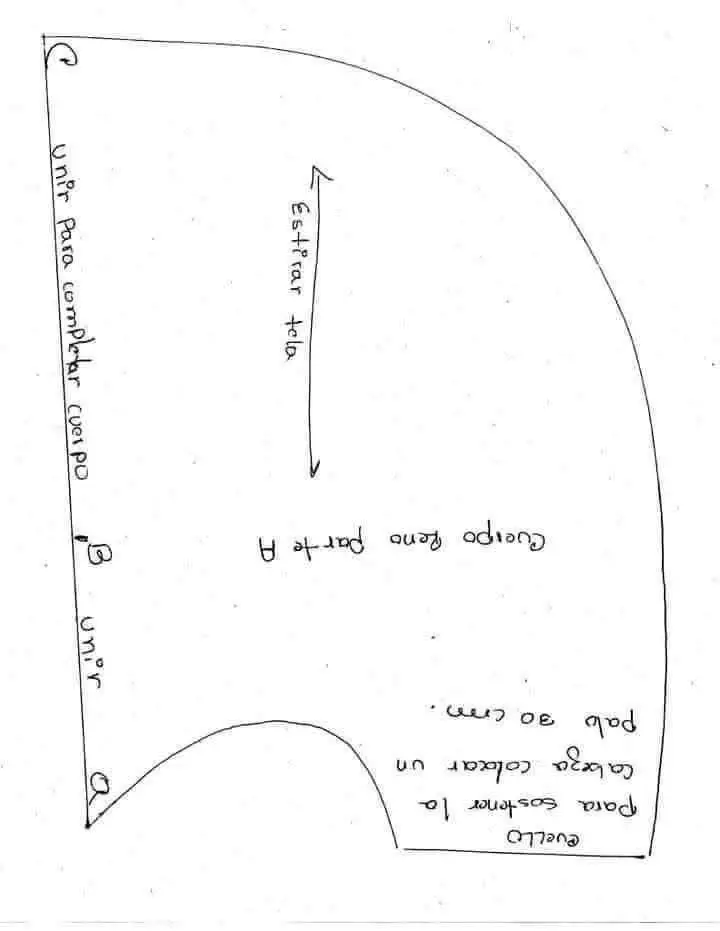 cuello
para sostener la
cabeza colocar un
palo 30 cm.
Cuerpo Reno parte A
Estirar tela
C
unir para completar cuerpo
B
unir
a